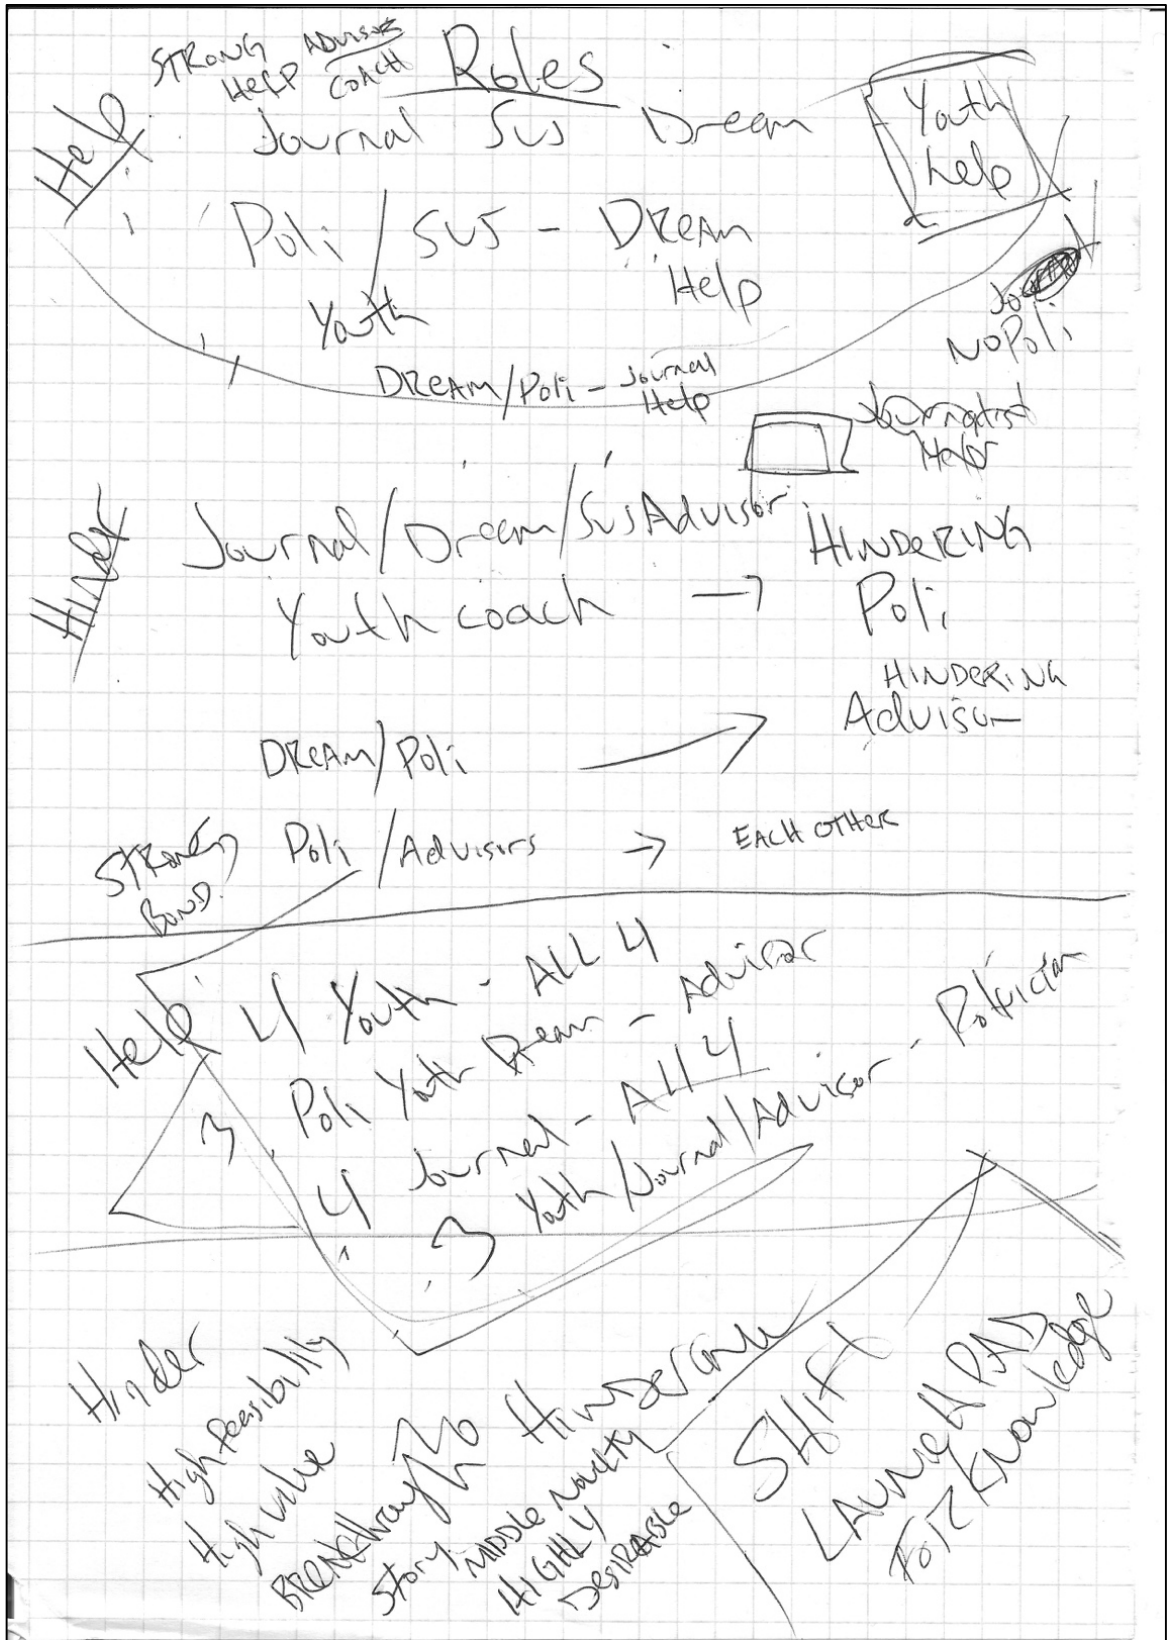 STRONG ADVISOR
HELP COACH Roles
Help
Journal Sus Dream
Youth
help
Poli / SUS - DREAM
Help
Youth
NO Poli
DREAM/Poli - Journal
Help
Journalist
Hinder
Journal/Dream/Sus Advisor
HINDERING
Youth coach → Poli
HINDERING
Advisor
DREAM/Poli
STRONG
BOND
Poli / Advisors → EACH OTHER
Help
4 Youth - ALL 4
3 Poli Youth Dream - Advisor
4 Journal - All 4
3 Youth/Journal/Advisor - Politician
Hinder
High feasibility
High value
BREAKthrough
Story
MIDDLE Novelty
HIGHLY
DesIRABLE
SHIFT
LAUNCH PAD
FOR KNOWledge